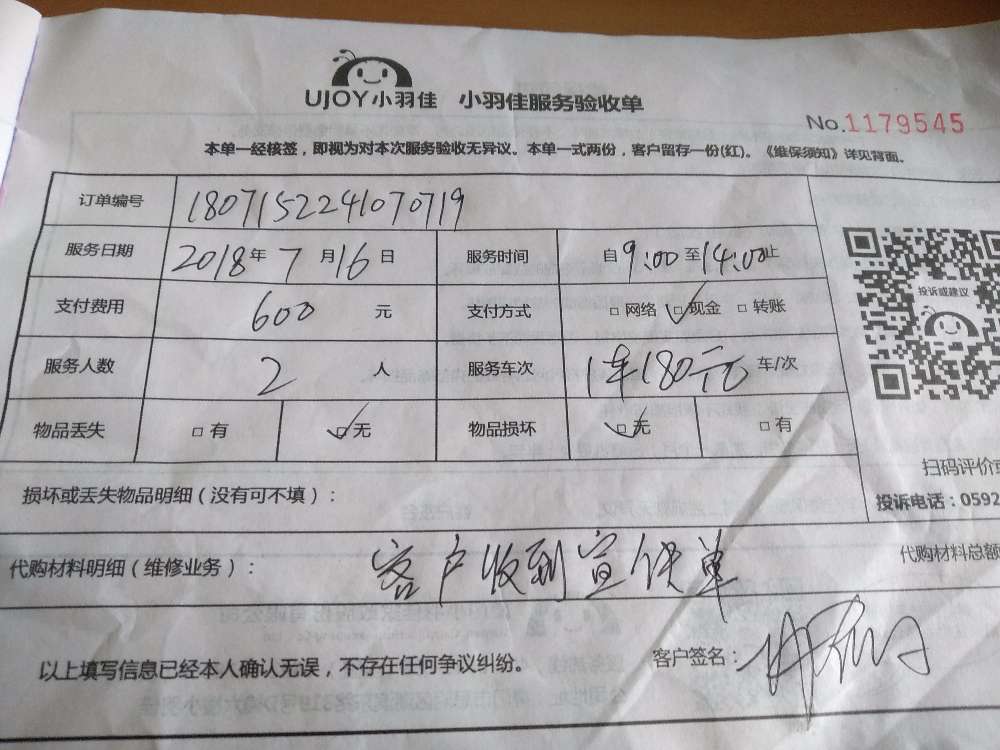 UJOY小羽佳 小羽佳服务验收单
No.1179545
本单一经核签，即视为对本次服务验收无异议。本单一式两份，客户留存一份(红)。《维保须知》详见背面。
订单编号 1807152241070719
服务日期 2018年7月16日 服务时间 自9:00至14:00止
支付费用 600 元 支付方式 □网络 □现金 □转账
投诉或建议
服务人数 2 人 服务车次 1车180元 车/次
物品丢失 □有 □无 物品损坏 □无 □有
扫码评价或
损坏或丢失物品明细（没有可不填）：
投诉电话：0592
代购材料明细（维修业务）： 客户收到宣传单 代购材料总额
以上填写信息已经本人确认无误，不存在任何争议纠纷。 客户签名：